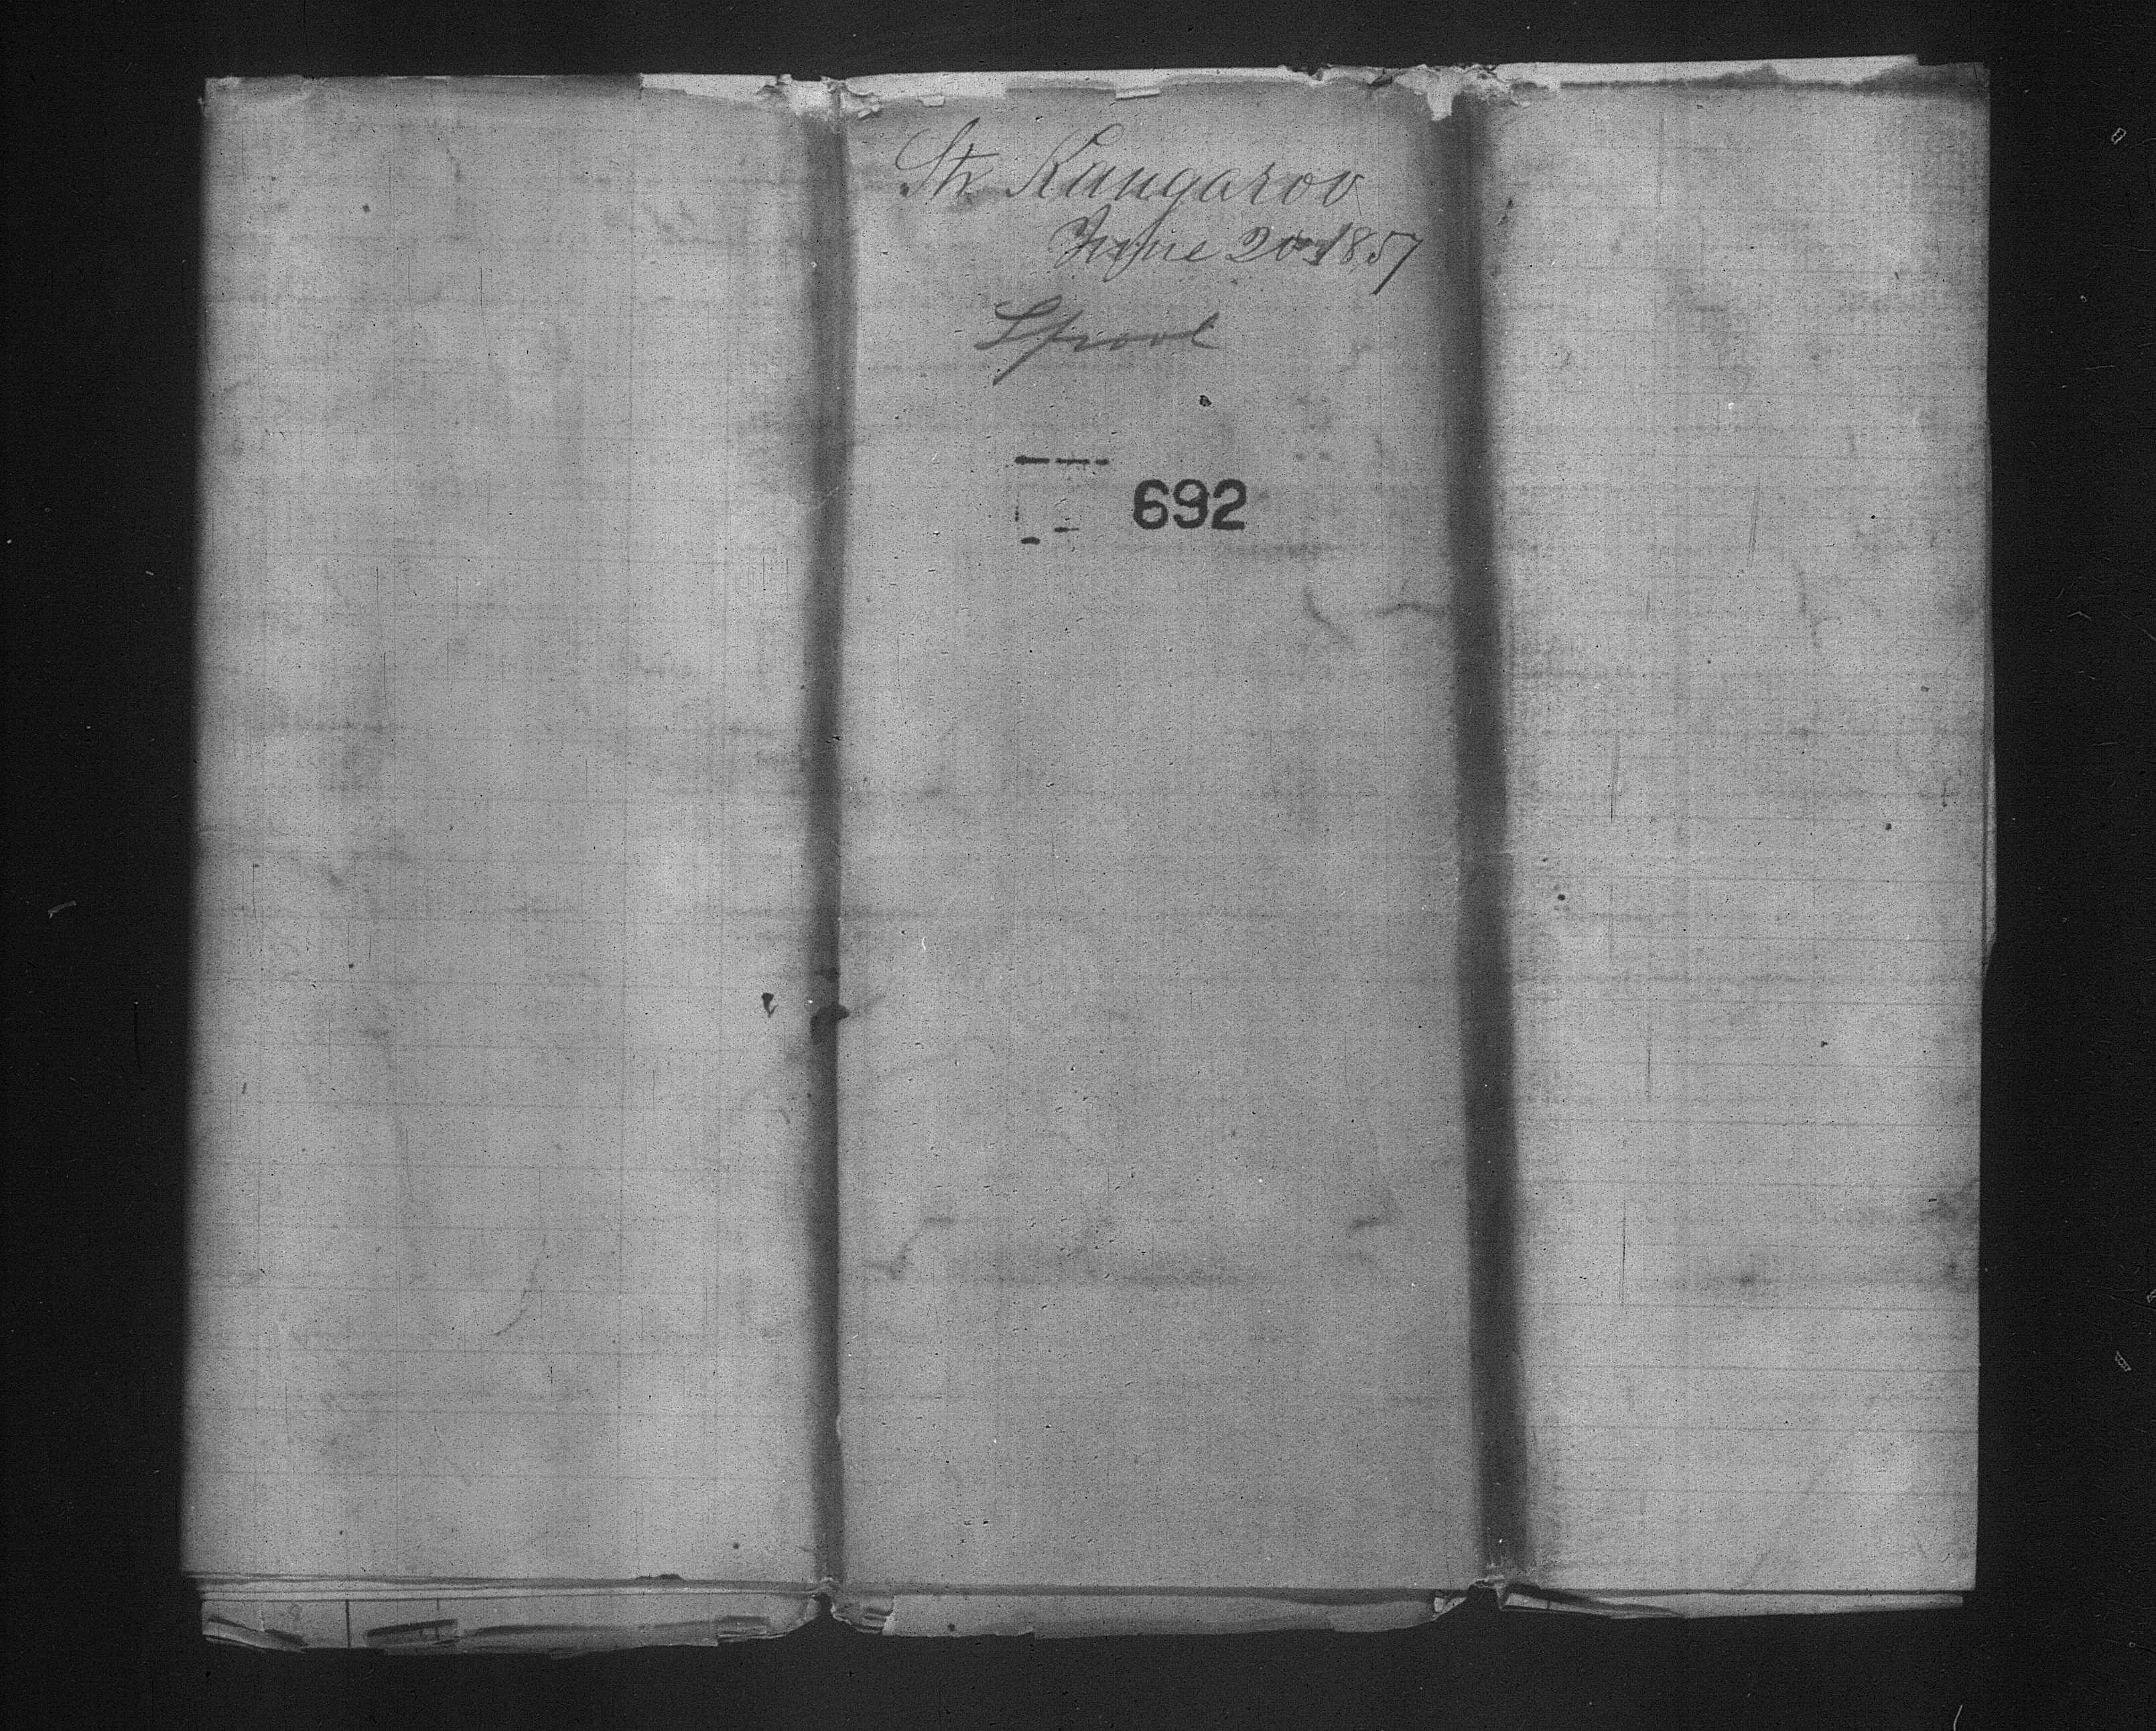 Str Kangaroo
June 20 1857
Lpool
692